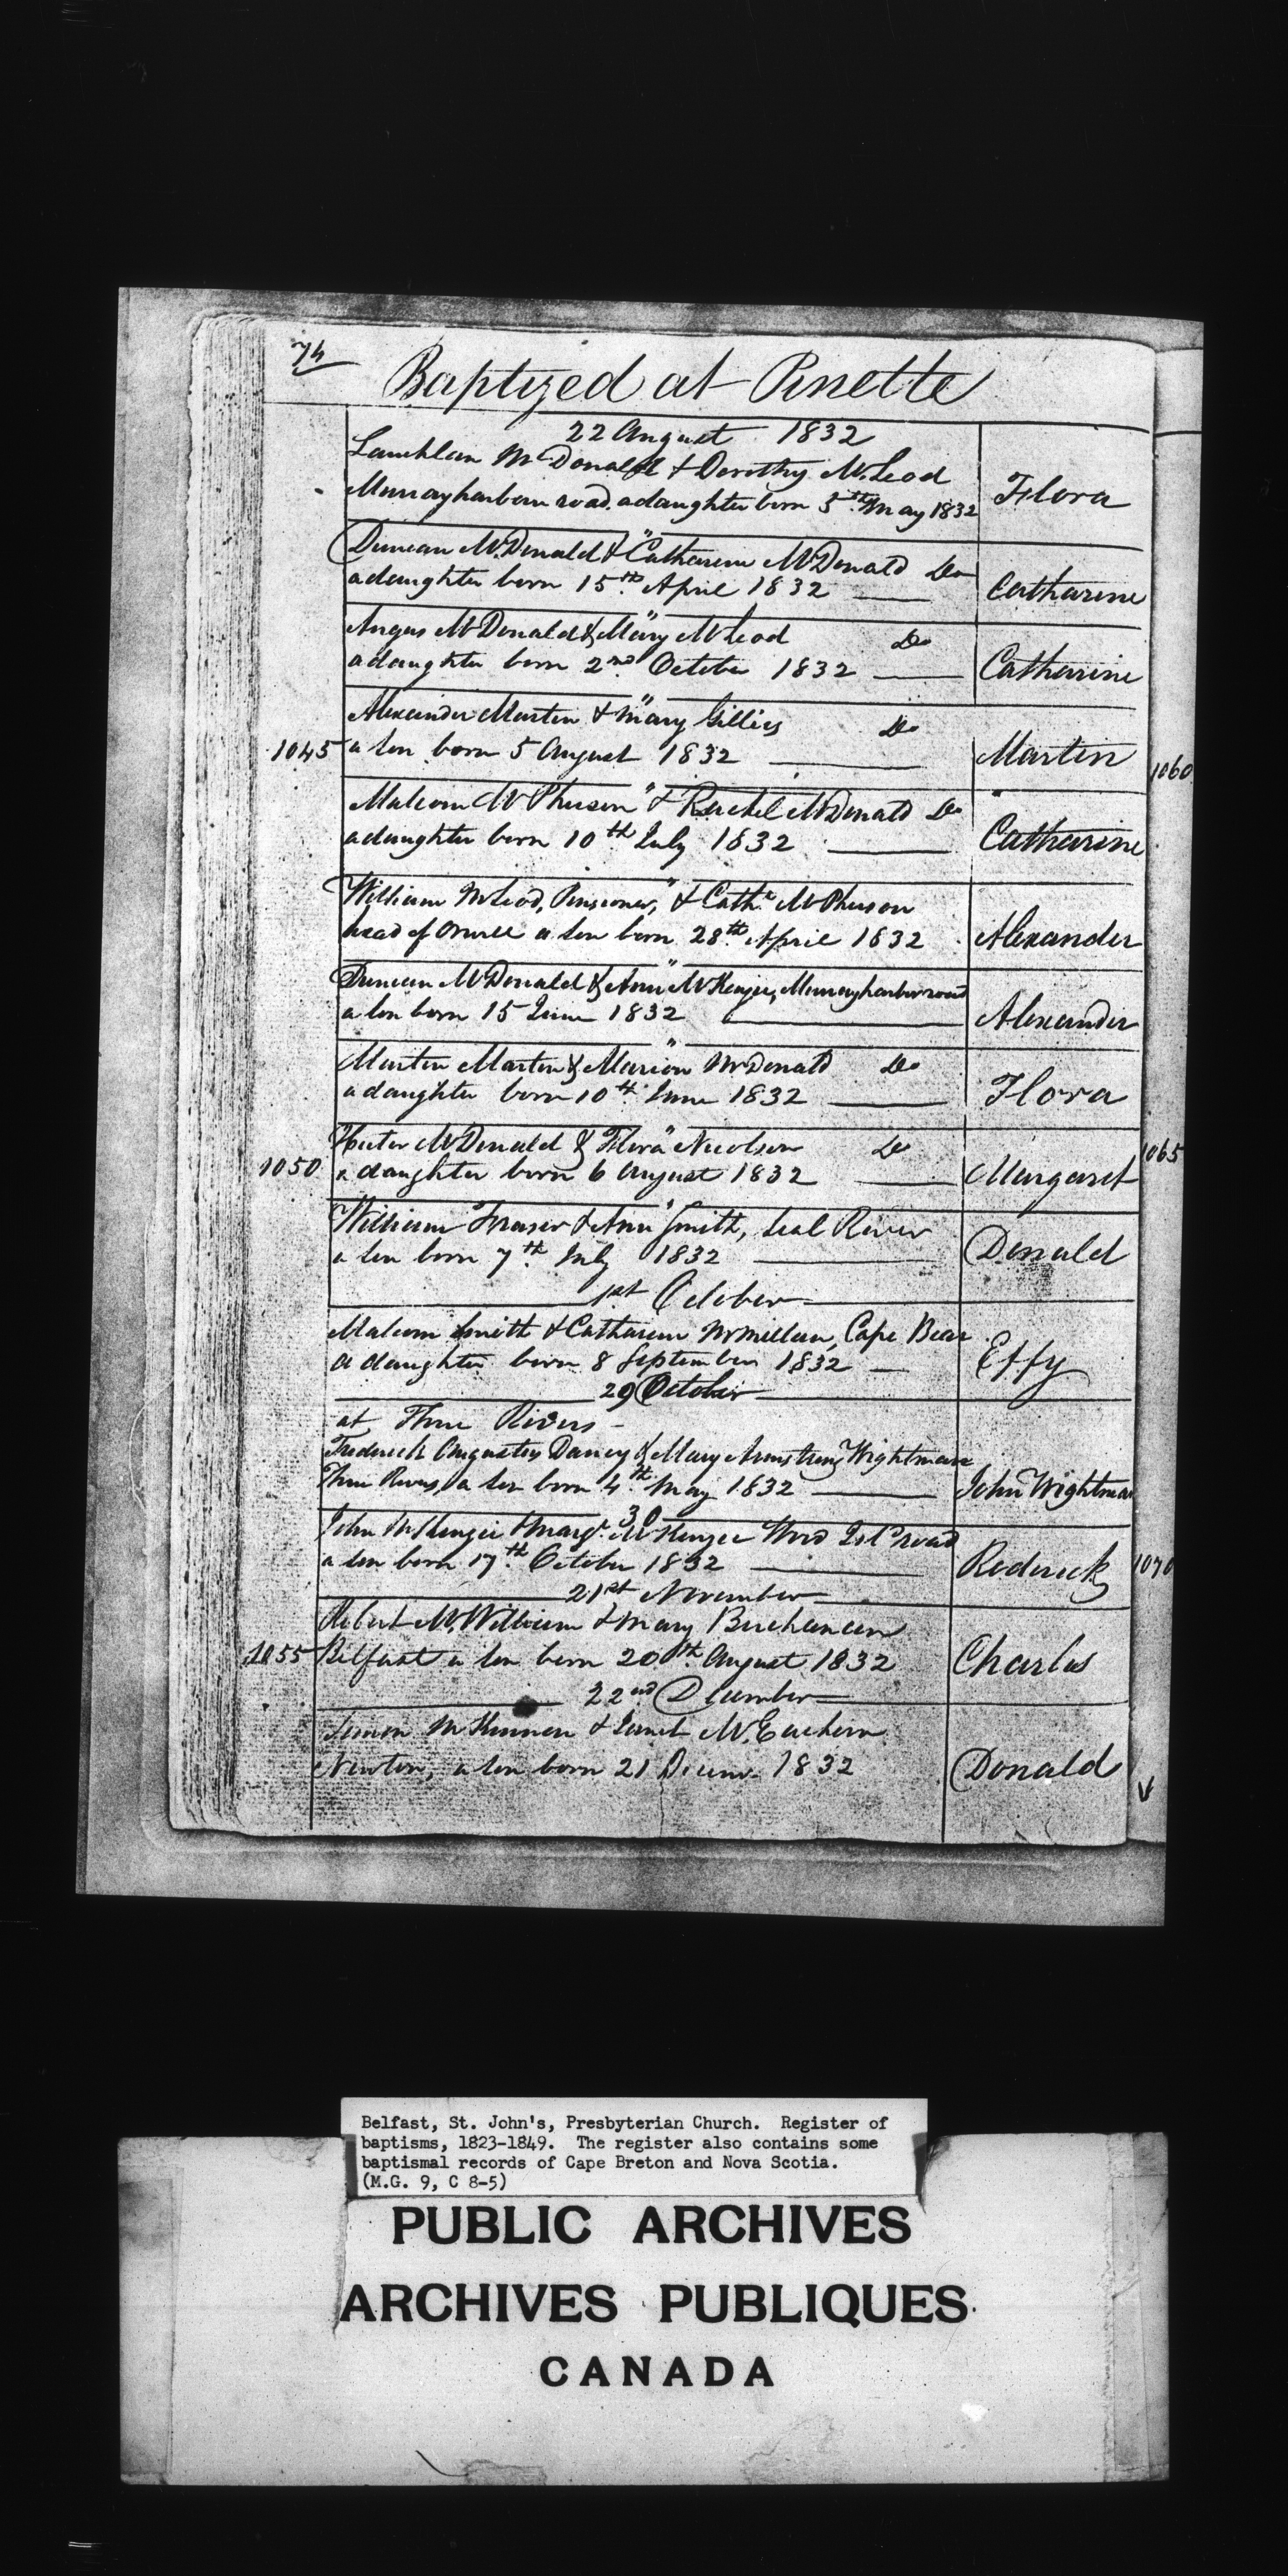 74
Baptized at Pinette
22 August 1832
Lauchlan McDonald & Dorothy McLeod
Murrayharbour road. a daughter born 5th May 1832
Flora
Duncan McDonald & Catharine McDonald Do
a daughter born 15th April 1832
Catharine
Angus McDonald & Mary McLeod Do
a daughter born 2nd October 1832
Catharine
Alexander Martin & Mary Gillies Do
1045 a son born 5 August 1832
Martin
1060
Malcom McPherson & Rachel McDonald Do
a daughter born 10th July 1832
Catharine
William McLeod, Pensioner, & Cathe McPherson
head of Orwell a son born 28th April 1832
Alexander
Duncan McDonald & Ann McKenzie, Murrayharbor road
a son born 15 June 1832
Alexander
Martin Martin & Marion McDonald Do
a daughter born 10th June 1832
Flora
Hector McDonald & Flora Nicolson Do
1050 a daughter born 6 August 1832
Margaret
1065
William Fraser & Ann Smith, Seal River
a son born 7th July 1832
Donald
1st October
Malcom Smith & Catharine McMillan, Cape Bear
a daughter born 8 September 1832
Effy
29 October
at Three Rivers
Frederick Augustus Dancy & Mary Armstrong Wightman
Three Rivers, a son born 4th May 1832
John Wightman
30
John McKenzie & Margt McKenzie Wood Isl. road
a son born 17th October 1832
Roderick
1070
21st November
Robert McWilliam & Mary Buchanan
1055 Belfast a son born 20th August 1832
Charles
22nd December
Simon McKinnon & Janet McEachern
Newton, a son born 21 Decemr 1832
Donald
Belfast, St. John's, Presbyterian Church. Register of
baptisms, 1823-1849. The register also contains some
baptismal records of Cape Breton and Nova Scotia.
(M.G. 9, C 8-5)
PUBLIC ARCHIVES
ARCHIVES PUBLIQUES
CANADA